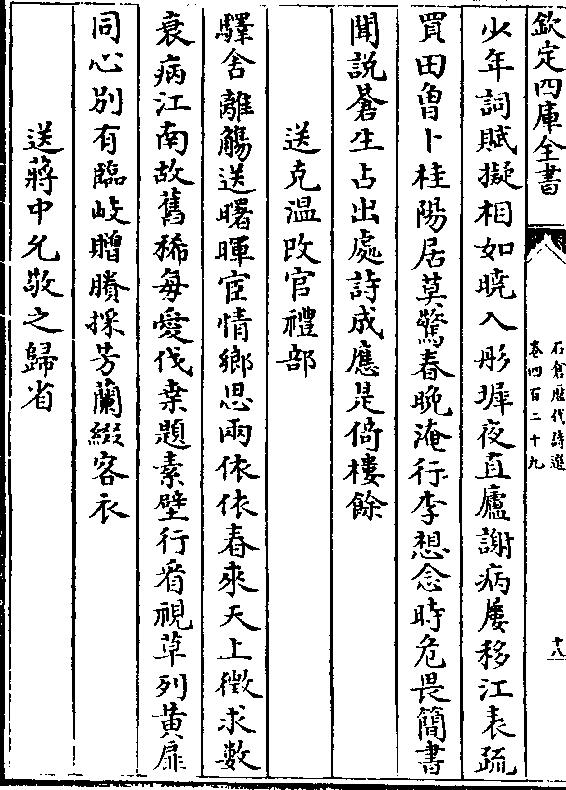 欽定四庫全書
石倉歴代詩選
卷四百二十九
十八
少年詞賦擬相如曉入彤墀夜直廬謝病屢移江表疏
買田魯卜桂陽居莫驚春晚淹行李想念時危畏簡書
聞説蒼生占出處詩成應是倚樓餘
送克溫改官禮部
驛舍離觴送曙暉宦情鄉思兩依依春來天上徵求數
衰病江南故舊稀每愛伐棠題素壁行看視草列黄扉
同心别有臨岐贈賸採芳蘭綴客衣
送蔣中允敬之歸省